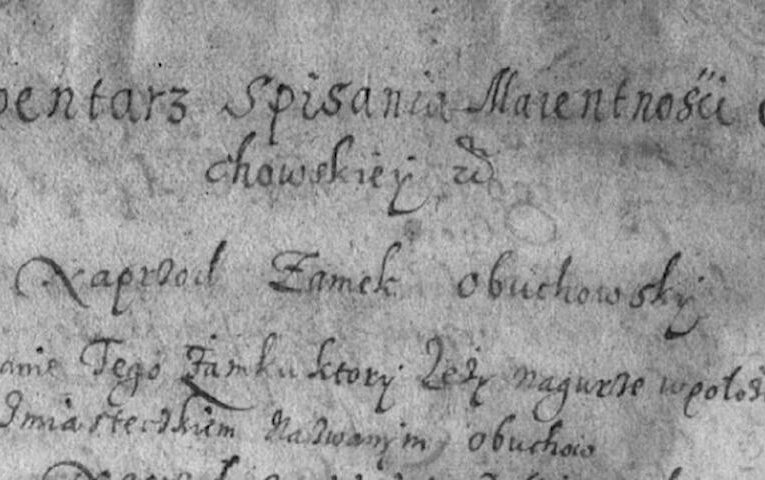 pentarz Spisania Maientnośći
chowskiey
Naprzod Zamek obuchowsky
anie Tego Zamku ktory Leży nagurze wpołoż
zmiasteczkiem nazwanym obuchow